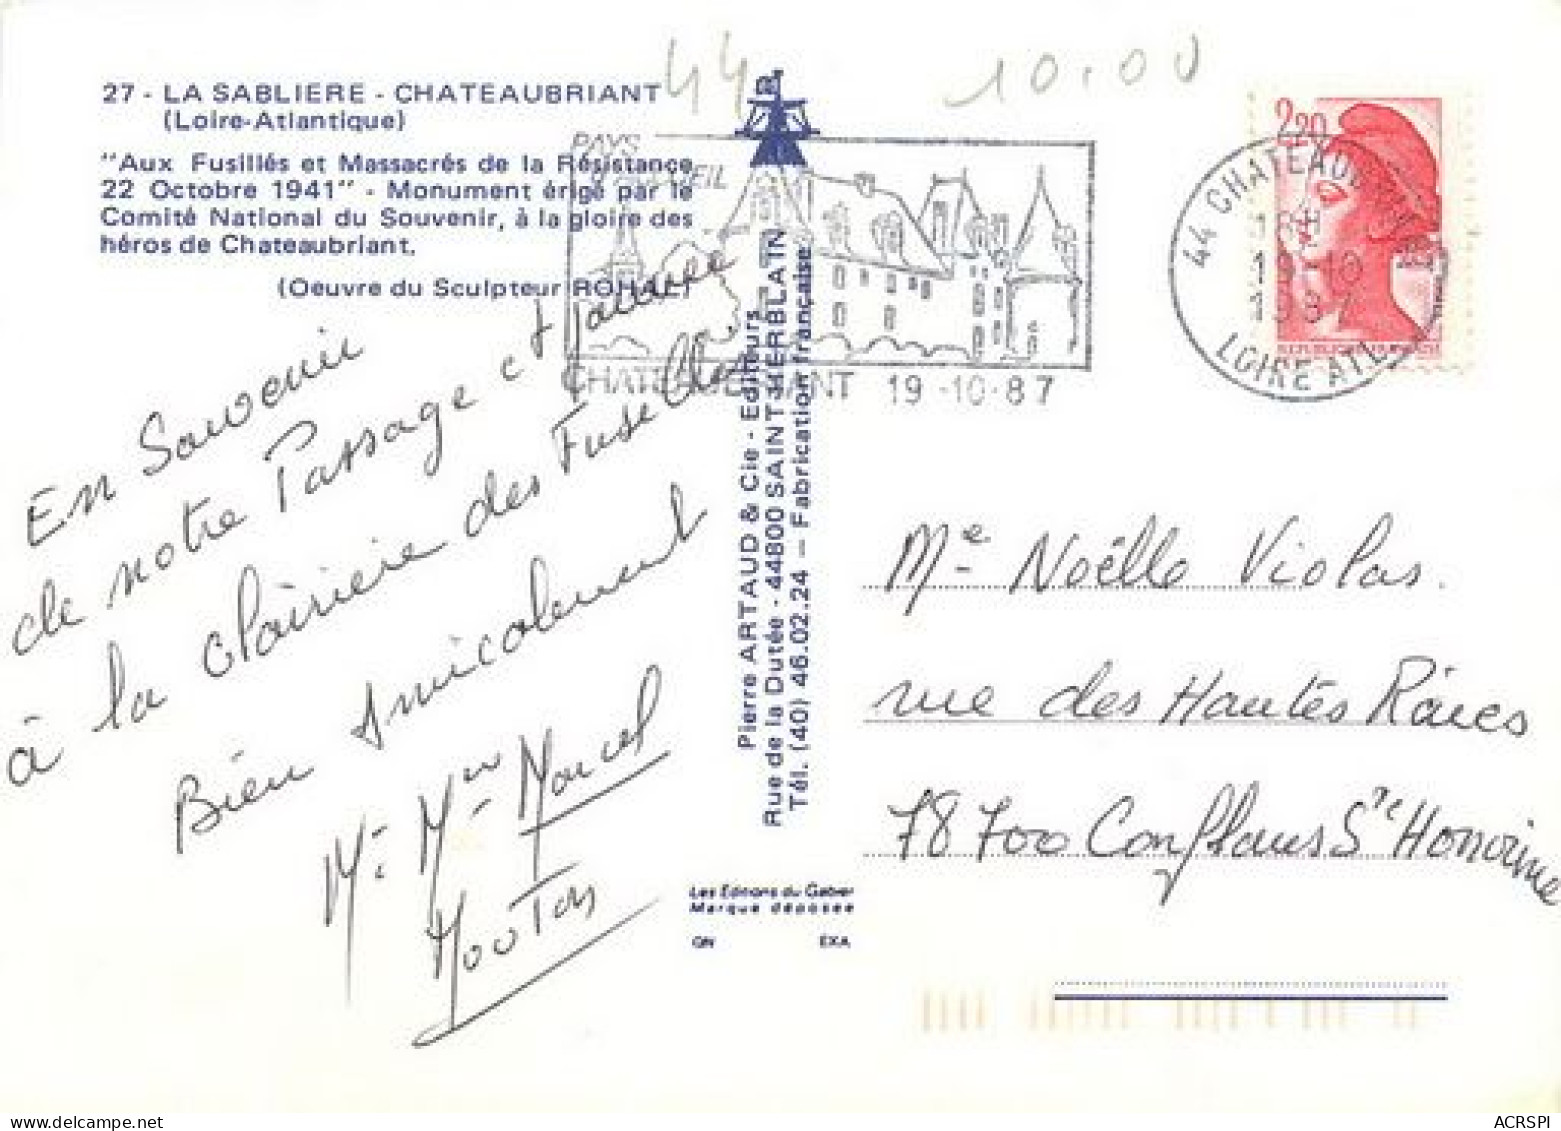 44
10.00
27 - LA SABLIERE - CHATEAUBRIANT
(Loire-Atlantique)
"Aux Fusillés et Massacrés de la Résistance
22 Octobre 1941" - Monument érigé par le
Comité National du Souvenir, à la gloire des
héros de Chateaubriant.
(Oeuvre du Sculpteur ROHAL)
PAYS
CHATEAUBRIANT 19-10-87
2,20
44 CHATEAUBRIANT
19-10
1987
LOIRE ATL
En Souvenir
de notre Passage
à la clairiere des Fusillés
Bien Amicalement
Mr Mme Marcel
Mouton
Pierre ARTAUD & Cie - Editeurs
Rue de la Dutée - 44800 SAINT-HERBLAIN
Tél. (40) 46.02.24 — Fabrication française
Les Editions du Gabier
Marque déposée
QN EXA
Me Noëlle Violas.
rue des Hautes Raies
78700 Conflans Ste Honorine
ACRSPI